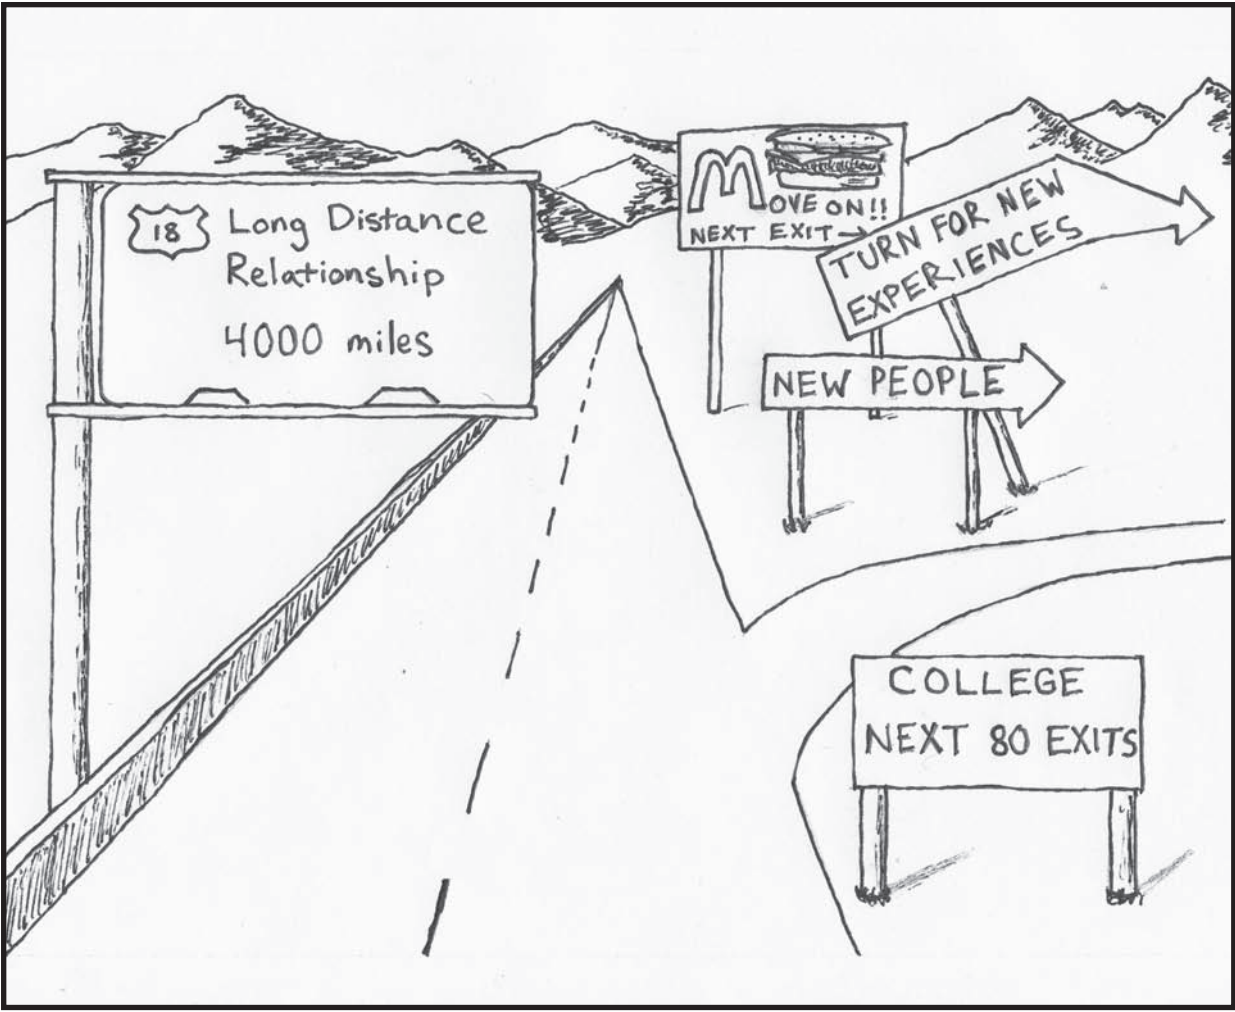 18 Long Distance
Relationship
4000 miles
MOVE ON!!
NEXT EXIT→
TURN FOR NEW
EXPERIENCES
NEW PEOPLE
COLLEGE
NEXT 80 EXITS